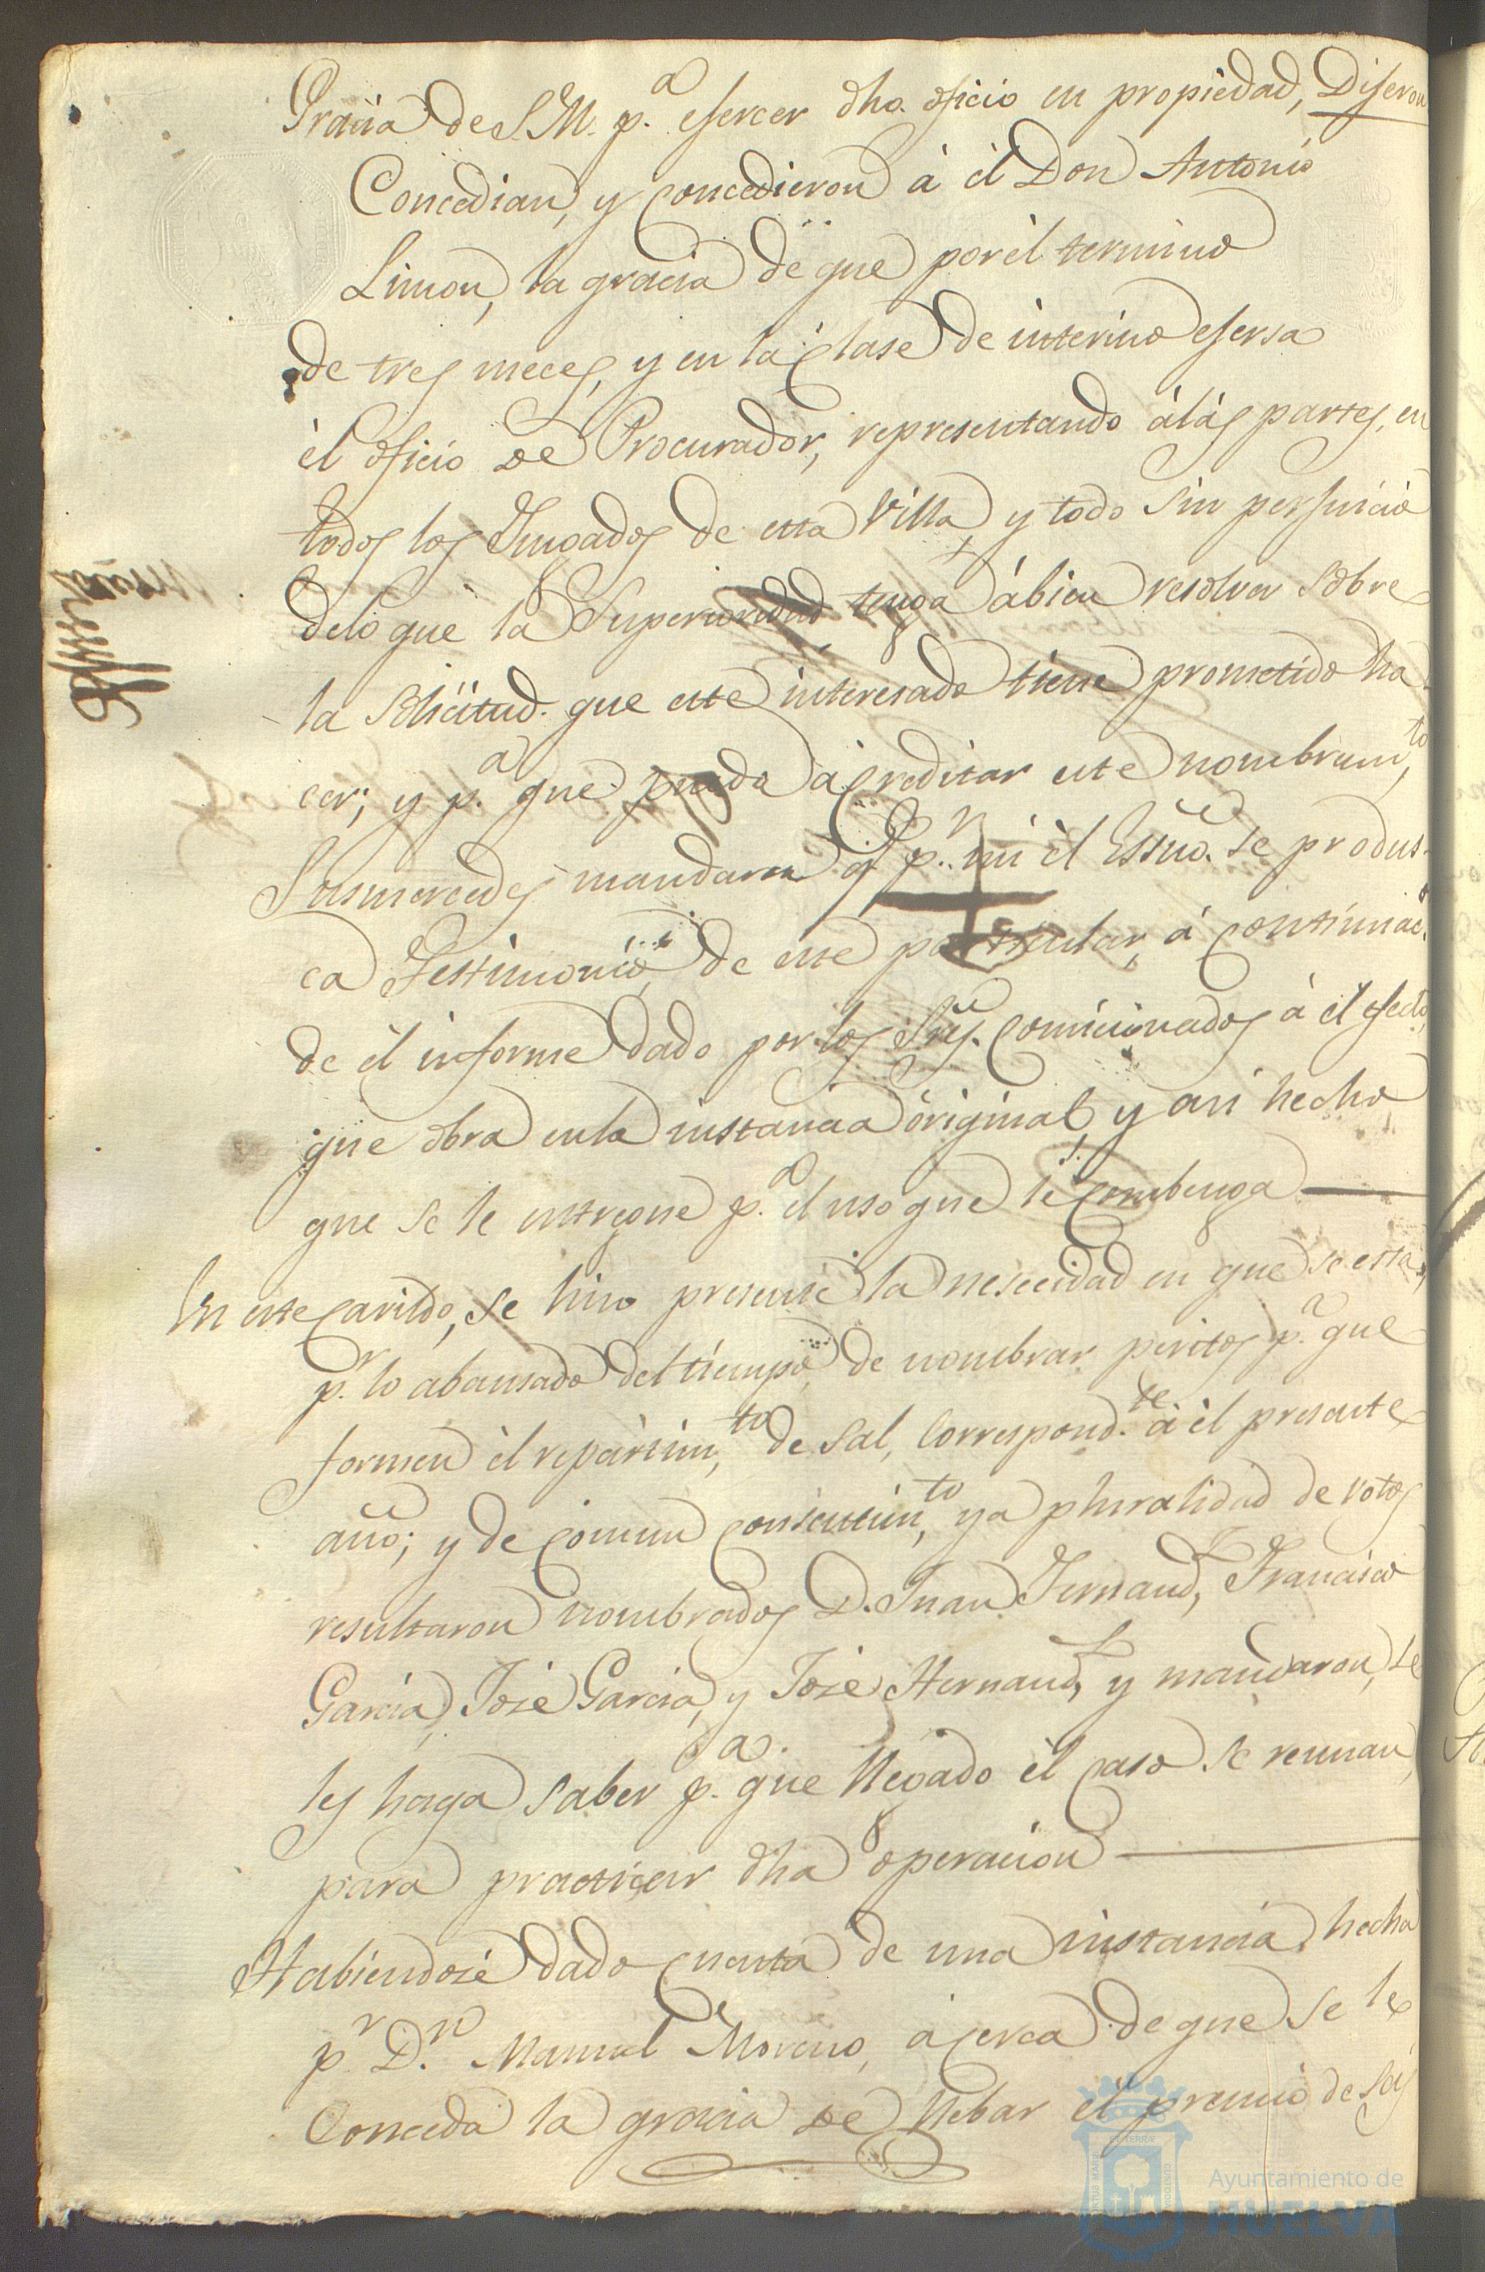 Gracia de S.M. p.ª eserser dho. oficio en propiedad, Diseron
Concedian, y Concedieron à èl Don Antonio
Limon, la gracia de que por èl termino
de tres meces, y en la Clase de interino esersa
èl oficio de Procurador, representando à las partes, en
todos los Jusgados de esta Villa, y todo sin persuicio
delo que la Superioridad tenga àbien resolver sobre
la solicitud que este interesado tiene prometido ha
cer; y p.ª que pueda aCreditar este nombram.to
Susmercedes mandaron q.e p.r mi èl Essno. se produs-
ca Testimonio de este particular, à Continuac.n
de èl informe dado por los Sres. Comicionados à èl efecto,
que obra enla instancia original, y asi hecho
que se le entregue p.ª el uso que le Combenga
En este Cavildo, se hiso presente la neseeidad en que se està,
p.r lo abansado del tiempo, de nombrar peritos p.ª que
formen èl repartim.to de Sal, Correspond.te à èl presente
año; y de Comun Consentim.to, y a pluralidad de votos
resultaron nombrados D. Juan Fernand.z, Francisco
Garcia, José Garcia, y José Hernand.z, y mandaron, se
les haga saber p.ª que llegado èl Caso se reunan
para practicar dha operacion
Habiendose dado Cuenta de una instancia hecha
p.r D.n Manuel Moreno, àCerca de que se le
Conceda la gracia de llebar èl premio de seis
Ayuntamiento de
HUELVA